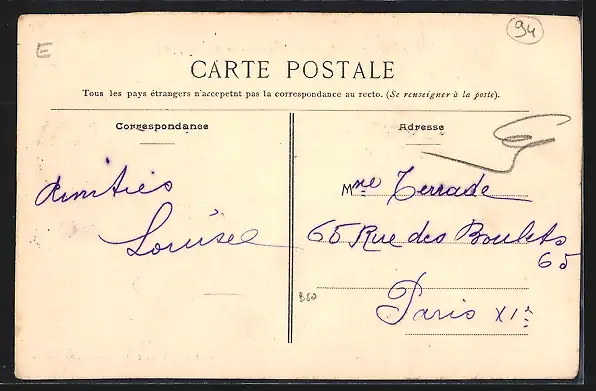 E
94
CARTE POSTALE
Tous les pays étrangers n'accepetnt pas la correspondance au recto. (Se renseigner à la poste).
Correspondance
Adresse
Amitiés
Louise
Mme Terrade
65 Rue des Boulets
65
Paris XIe
B60